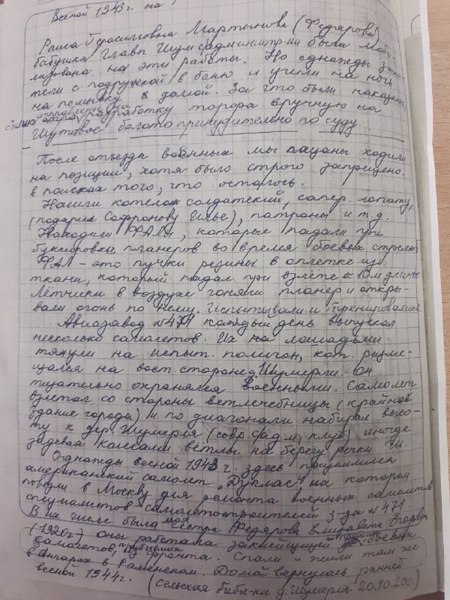 Весной 1943 г. на
Раиса Герасимовна Мартынова (Федарова)
бабушка Главы Шум. администр-ии была моби
лизована на эти работы. Но однажды
с подружкой в баню и ушли на ночь
на помывку домой. За что были наказаны
на разработку торфа вручную на
Шутовое болото принудительно по суду
После отъезда военных мы пацаны ходили
на позиции, хотя было строго запрещено,
в поисках того, что осталось.
Нашли котелок солдатский, сапер. лопату,
(подарен Софронову Илье), патроны и т.д.
Находили ФАЛы, которые падали при
буксировка планеров во время боевых стрельб
ФАЛ - это пучки резины в оплетке из
ткани, который падал при взлёте 10м длине
Лётчики в воздухе гоняли планер и откры-
вали огонь по нему. Испытывали и тренировались
Авиазавод №471 каждый день выпускал
несколько самолетов. Их на лошадях
тянули на испыт. полигон, кот. разме-
щался на вост. стороне д. Шумерля. Он
тщательно охранялся военными. Самолет
взлетал со стороны ветлечебницы (крайнее
здание города) и по диагонали набирал высо-
ту к дер. Шумерля (совр. фад. м, клуб) иногда
задевая колесами вётлы на берегу речки
Однажды весной 1943 г. здесь приземлился
американский самолет "Дуглас", на котором
повезли в Москву для ремонта военных самолетов
специалистов самолётостроителей з-да №471
В их числе была моя сестра Федарова Елизавета Егоровна
(1920г) она работала
самолетов, с фронта. Спали и жили там же
в ангарах в Раменском. Домой вернулась ранней
весной 1944г. (сельская библ-ка д. Шумерля 20.10.20г)